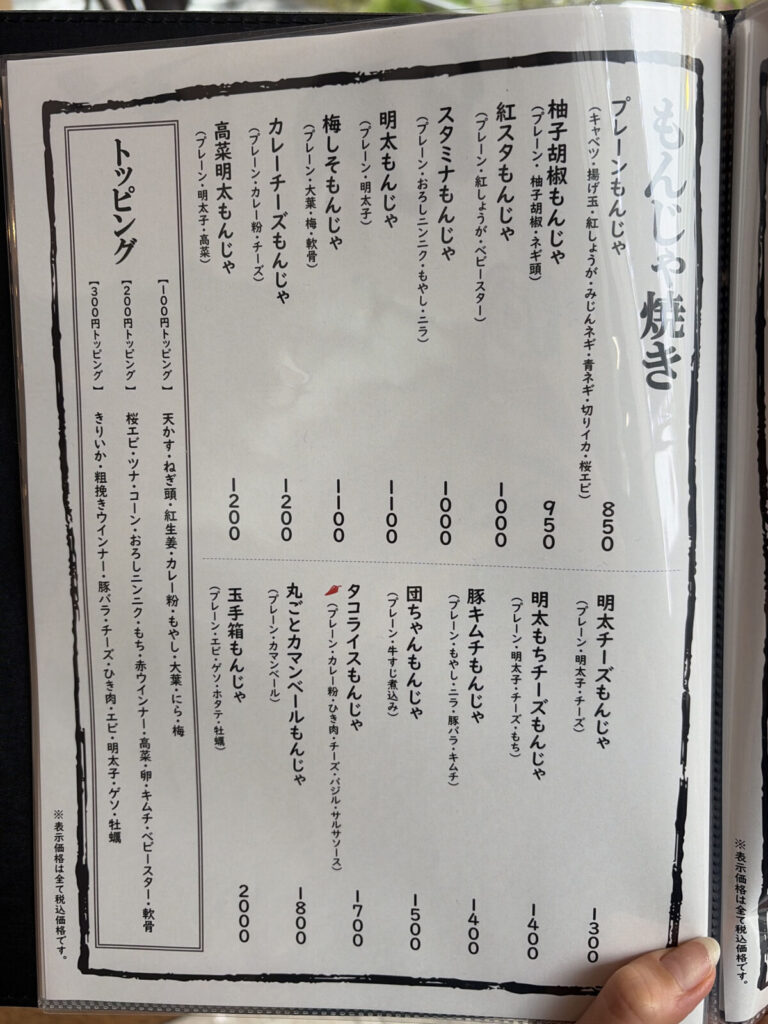 もんじゃ焼き
プレーンもんじゃ
850
(キャベツ・揚げ玉・紅しょうが・みじんネギ・青ネギ・切りイカ・桜エビ)
柚子胡椒もんじゃ
950
(プレーン・柚子胡椒・ネギ頭)
紅スタもんじゃ
1000
(プレーン・紅しょうが・ベビースター)
スタミナもんじゃ
1000
(プレーン・おろしニンニク・もやし・ニラ)
明太もんじゃ
1100
(プレーン・明太子)
梅しそもんじゃ
1100
(プレーン・大葉・梅・軟骨)
カレーチーズもんじゃ
1200
(プレーン・カレー粉・チーズ)
高菜明太もんじゃ
1200
(プレーン・明太子・高菜)
明太チーズもんじゃ
1300
(プレーン・明太子・チーズ)
明太もちチーズもんじゃ
1400
(プレーン・明太子・チーズ・もち)
豚キムチもんじゃ
1400
(プレーン・もやし・ニラ・豚バラ・キムチ)
団ちゃんもんじゃ
1500
(プレーン・牛すじ煮込み)
タコライスもんじゃ
1700
(プレーン・カレー粉・ひき肉・チーズ・バジル・サルサソース)
丸ごとカマンベールもんじゃ
1800
(プレーン・カマンベール)
玉手箱もんじゃ
2000
(プレーン・エビ・ゲソ・ホタテ・牡蠣)
トッピング
【100円トッピング】 天かす・ねぎ頭・紅生姜・カレー粉・もやし・大葉・にら・梅
【200円トッピング】 桜エビ・ツナ・コーン・おろしニンニク・もち・赤ウインナー・高菜・卵・キムチ・ベビースター・軟骨
【300円トッピング】 きりいか・粗挽きウインナー・豚バラ・チーズ・ひき肉・エビ・明太子・ゲソ・牡蠣
※表示価格は全て税込価格です。
※表示価格は全て税込価格です。